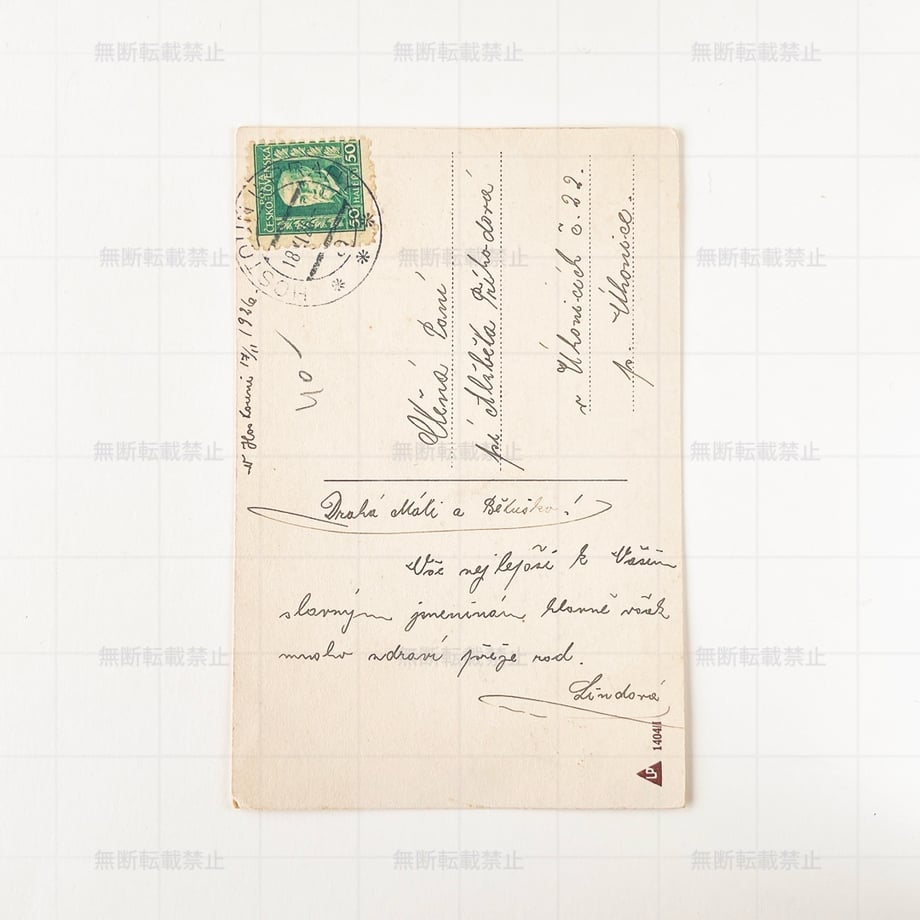 無断転載禁止 無断転載禁止 無断転載禁止
POŠTA
ČESKOSLOVENSKÁ
50 HALÉŘŮ 50
HOSTOUŇ
18.
v Hostouni 17/11 1926
40
Ctěná Paní
pí Alžběta Příhodová
v Úhonicích č. 22.
p. Úhonice.
Drahá Máti a Bětuško!
Vše nejlepší k Vašim
slavným jmeninám, hlavně však
mnoho zdraví přeje rod.
Lindová
LP 1404/I
無断転載禁止 無断転載禁止 無断転載禁止
無断転載禁止 無断転載禁止 無断転載禁止
無断転載禁止 無断転載禁止 無断転載禁止
無断転載禁止 無断転載禁止 無断転載禁止